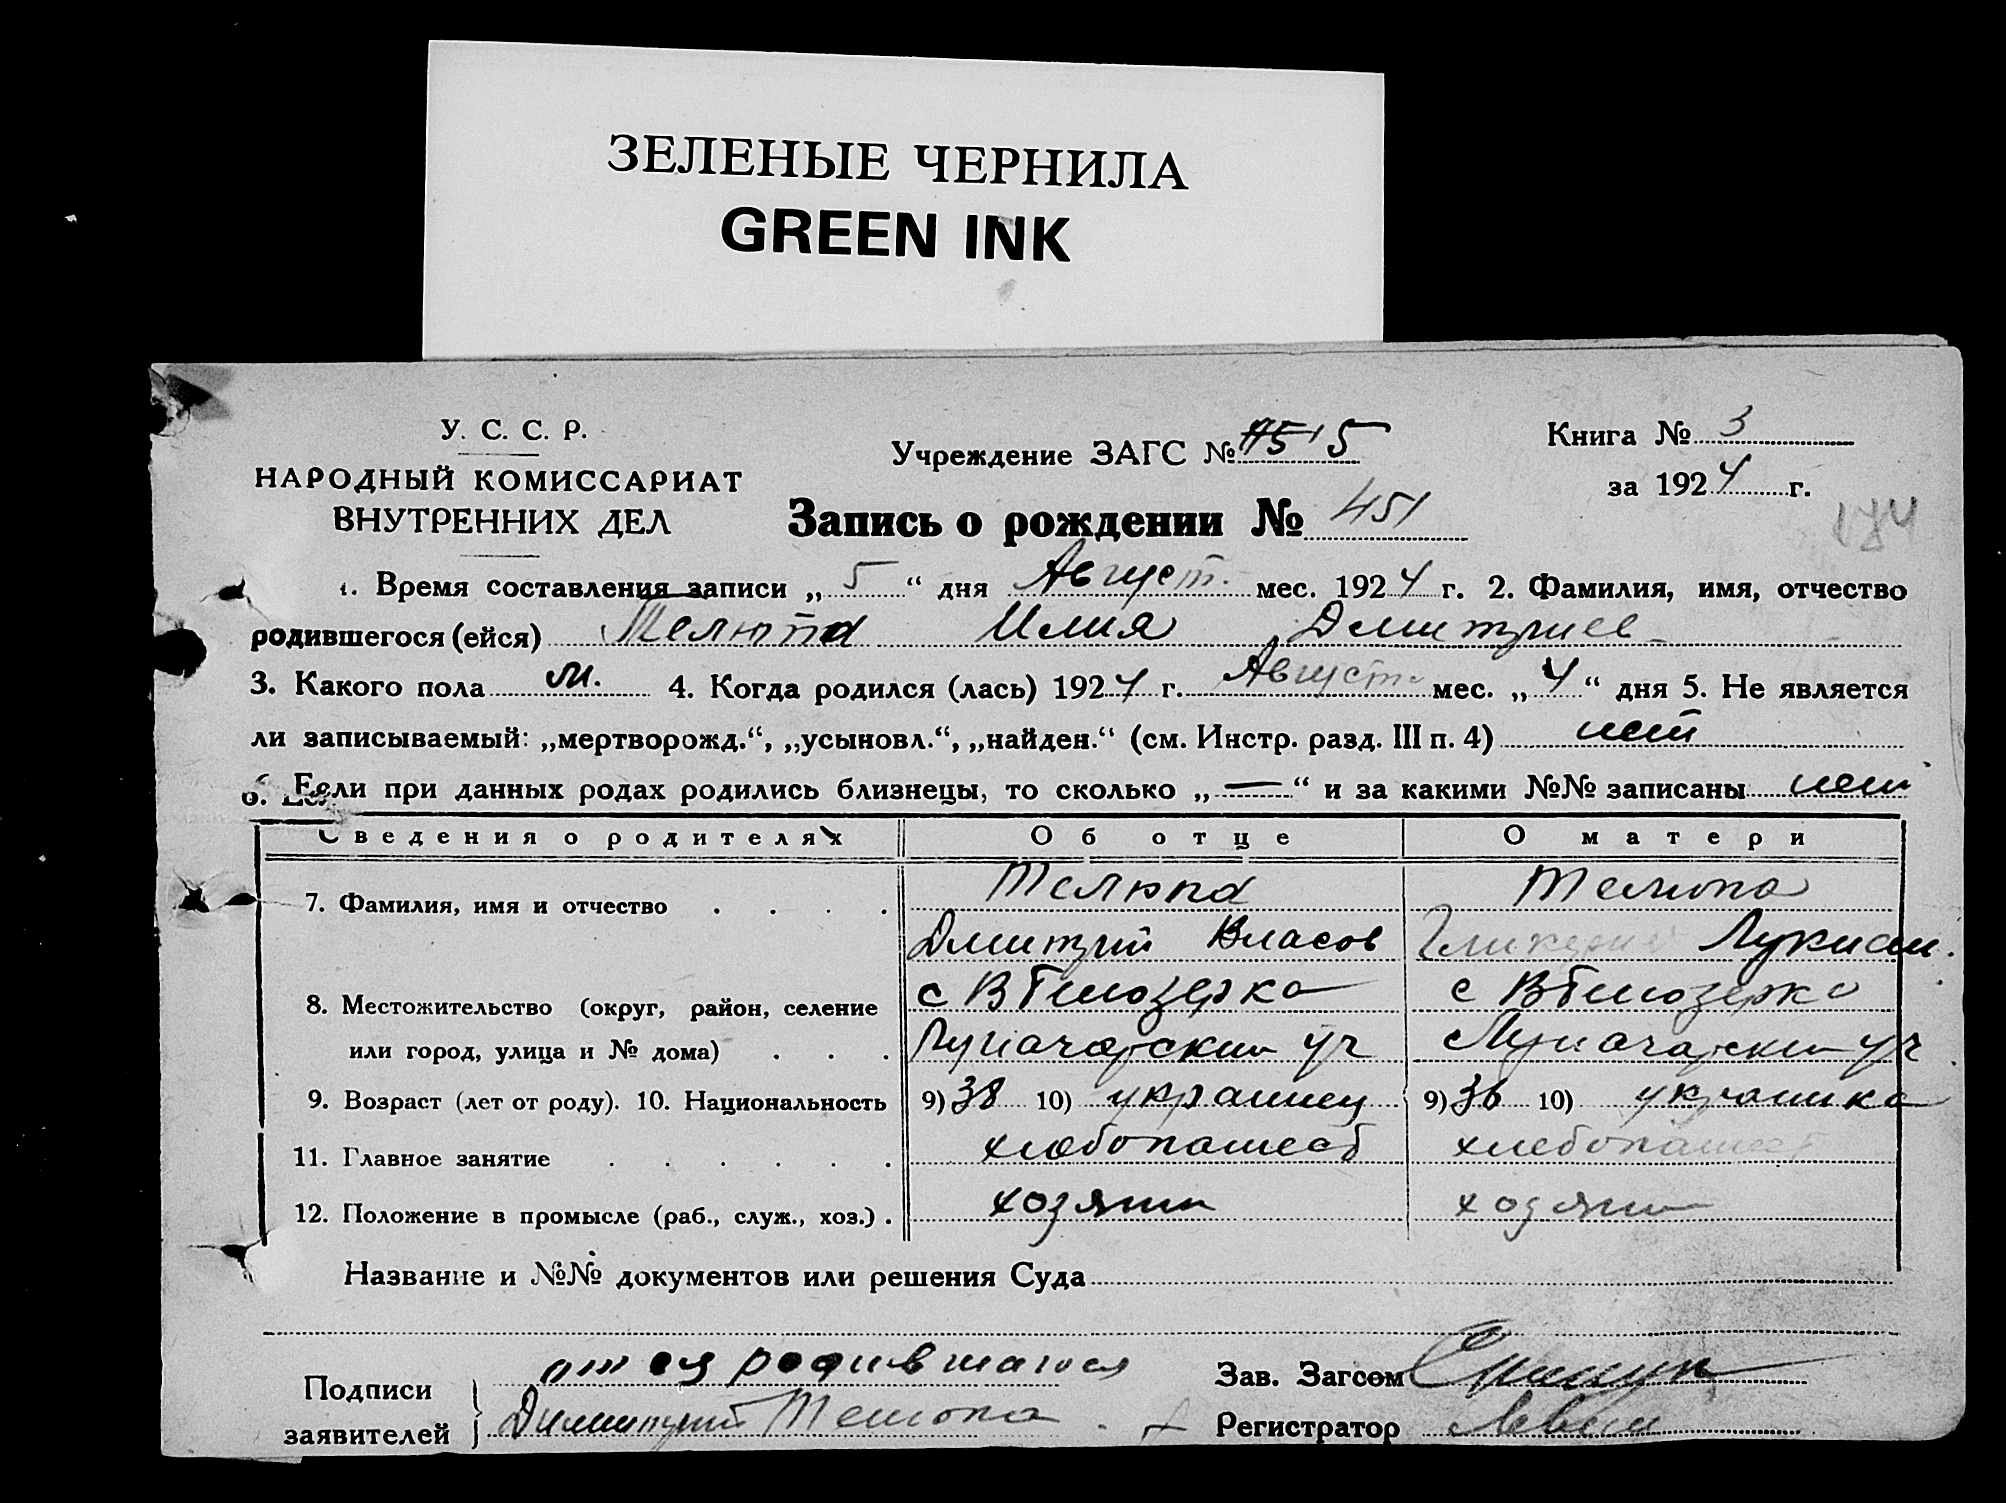 ЗЕЛЕНЫЕ ЧЕРНИЛА
GREEN INK
У. С. С. Р.
НАРОДНЫЙ КОМИССАРИАТ
ВНУТРЕННИХ ДЕЛ
Учреждение ЗАГС № 5
Книга № 3
за 1924 г.
Запись о рождении № 451
1. Время составления записи „5“ дня Август. мес. 1924 г. 2. Фамилия, имя, отчество
родившегося (ейся) Телюпа Илия Дмитриев
3. Какого пола м. 4. Когда родился (лась) 1924 г. Август. мес. „4“ дня 5. Не является
ли записываемый: „мертворожд.“, „усыновл.“, „найден.“ (см. Инстр. разд. III п. 4) нет
6. Если при данных родах родились близнецы, то сколько „—“ и за какими №№ записаны нет
Сведения о родителях Об отце О матери
7. Фамилия, имя и отчество . . . . Телюпа Телюпа
Дмитрий Власов Гликерия Лукиан.
8. Местожительство (округ, район, селение с В Билозерка с В Билозерка
или город, улица и № дома) . . . Луначарский уч Луначарский уч
9. Возраст (лет от роду). 10. Национальность 9) 38 10) украинец 9) 36 10) украинка
11. Главное занятие . . . . . . хлебопашест хлебопашест
12. Положение в промысле (раб., служ., хоз.) . хозяин хозяин
Название и №№ документов или решения Суда
Подписи
заявителей
отец родившагося
Димитрий Телюпа
Зав. Загсом
Регистратор